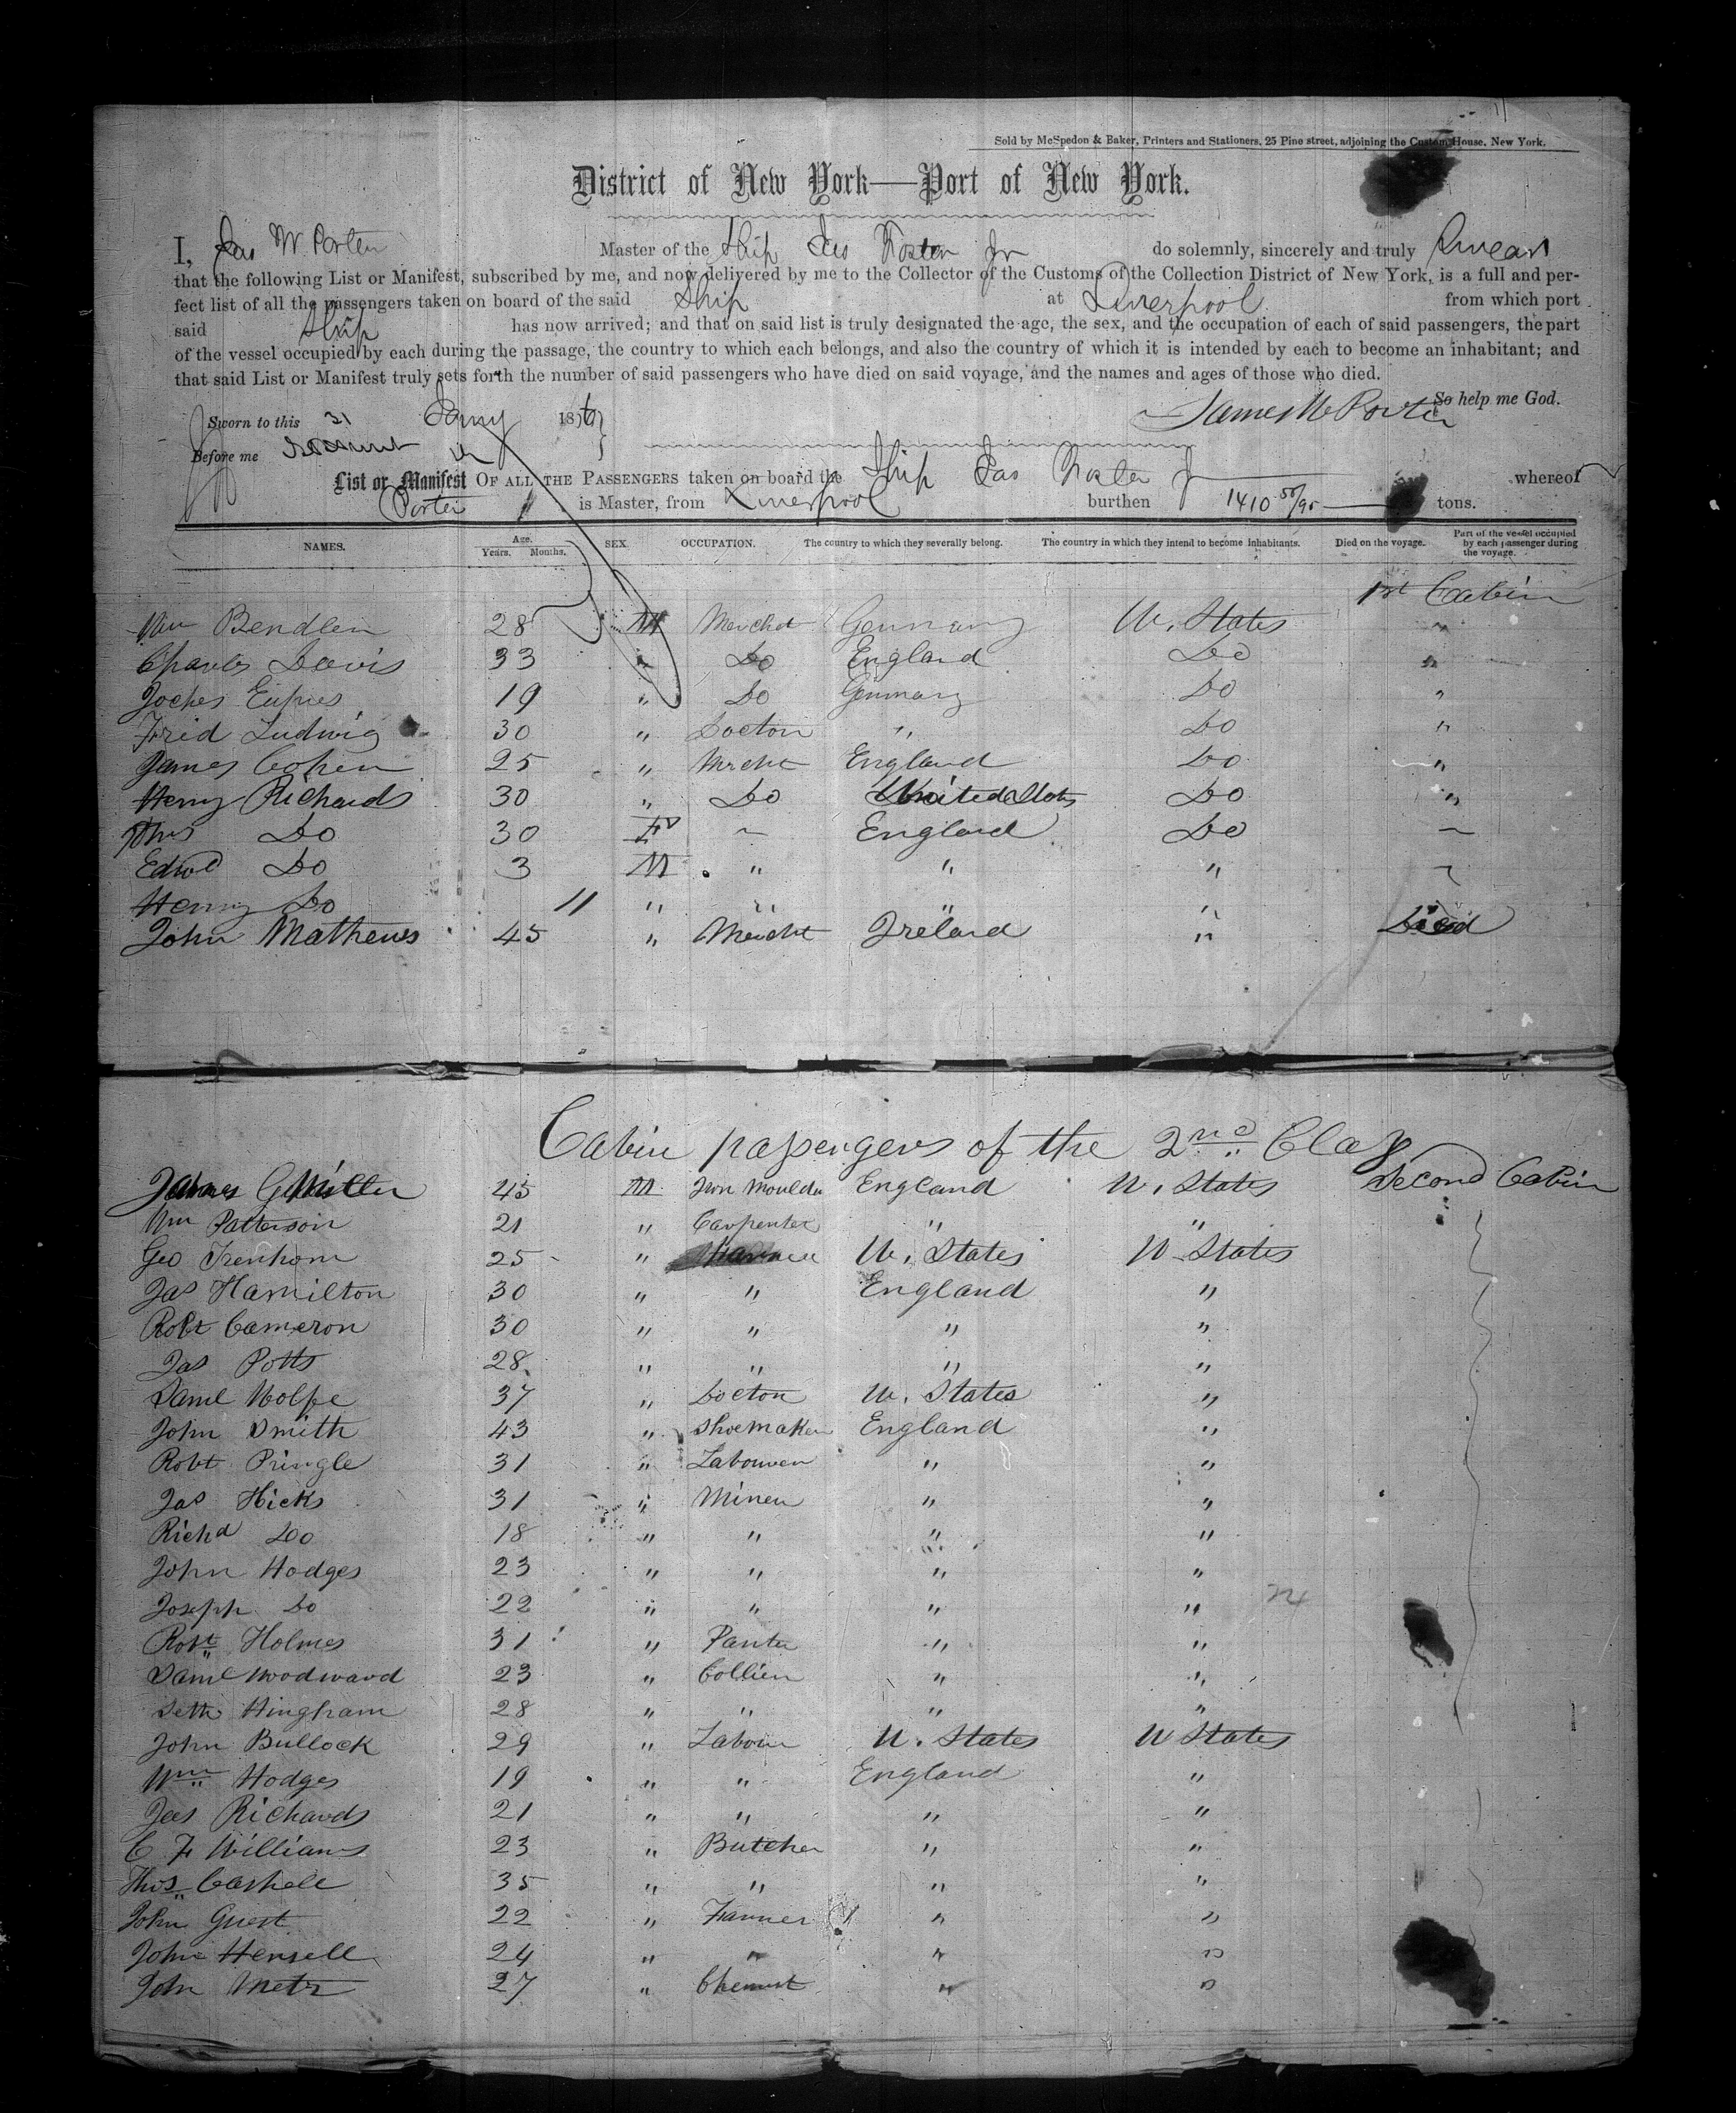 Sold by McSpedon & Baker, Printers and Stationers, 25 Pine street, adjoining the Custom House, New York.
District of New York—Port of New York.
I, Jas W. Porter Master of the Ship Jas Foster Jr do solemnly, sincerely and truly Swear
that the following List or Manifest, subscribed by me, and now delivered by me to the Collector of the Customs of the Collection District of New York, is a full and per-
fect list of all the passengers taken on board of the said Ship at Liverpool from which port
said Ship has now arrived; and that on said list is truly designated the age, the sex, and the occupation of each of said passengers, the part
of the vessel occupied by each during the passage, the country to which each belongs, and also the country of which it is intended by each to become an inhabitant; and
that said List or Manifest truly sets forth the number of said passengers who have died on said voyage, and the names and ages of those who died.
So help me God.
Sworn to this 31 Jany 18 James W Porter
Before me
List or Manifest OF ALL THE PASSENGERS taken on board the Ship Jas Foster Jr whereof
Porter is Master, from Liverpool burthen 1410 50/95 tons.
NAMES. Age. Years. Months. SEX. OCCUPATION. The country to which they severally belong. The country in which they intend to become inhabitants. Died on the voyage. Part of the vessel occupied by each passenger during the voyage.
1st Cabin
Wm Bendlen 28 M Merchd Germany U. States "
Charles Davis 33 " Do England Do "
Joches 19 " Do Germany Do "
Fred Ludwig 30 " Docton " Do "
James Cohen 25 " Mrcht England Do "
Henry Richards 30 " Do United States Do "
Do 30 F " England Do "
Edwd Do 3 M " " " "
Henry Do 11 " " " "
John Mathews 45 " Mercht Ireland " Died
Cabin passengers of the 2nd Class
James G Miller 45 M Iron Moulder England U. States Second Cabin
Wm Patterson 21 " Carpenter " "
Geo Trenhom 25 " U. States U States
Jas Hamilton 30 " " England "
Robt Cameron 30 " " " "
Jas Potts 28 " " " "
Danl Wolfe 37 " Docton U. States "
John Smith 43 " Shoemaker England "
Robt Pringle 31 " Labourer " "
Jas Hicks 31 " Miner " "
Richd Do 18 " " " "
John Hodges 23 " " " "
Joseph Do 22 " " " "
Robt Holmes 31 " Panter " "
Danl Woodward 23 " Collier " "
Seth Hingham 28 " " " "
John Bullock 29 " Labour U. States U States
Wm Hodges 19 " " England "
Jas Richards 21 " " " "
C F Williams 23 " Butcher " "
Thos Cashell 35 " " " "
John Guest 22 " Farmer " "
John Hensell 24 " " " "
John Metz 27 " Chemist " "